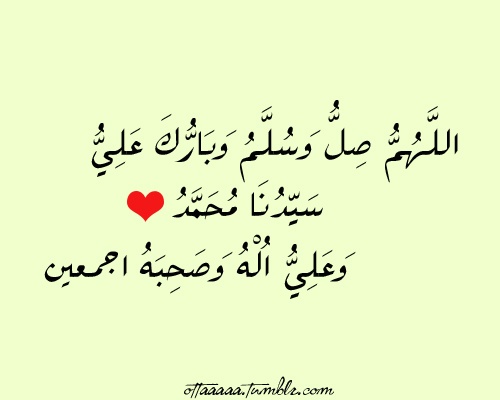 اللَّهُمُّ صِلُّ وَسُلَّمُ وَبَارُّكَ عَلِيُّ
سَيّدُنَا مُحَمَّدُ ❤
وَعَلِيُّ اُلْهُ وَصَحِبَهُ اجمعين
ottaaaaa.tumblr.com